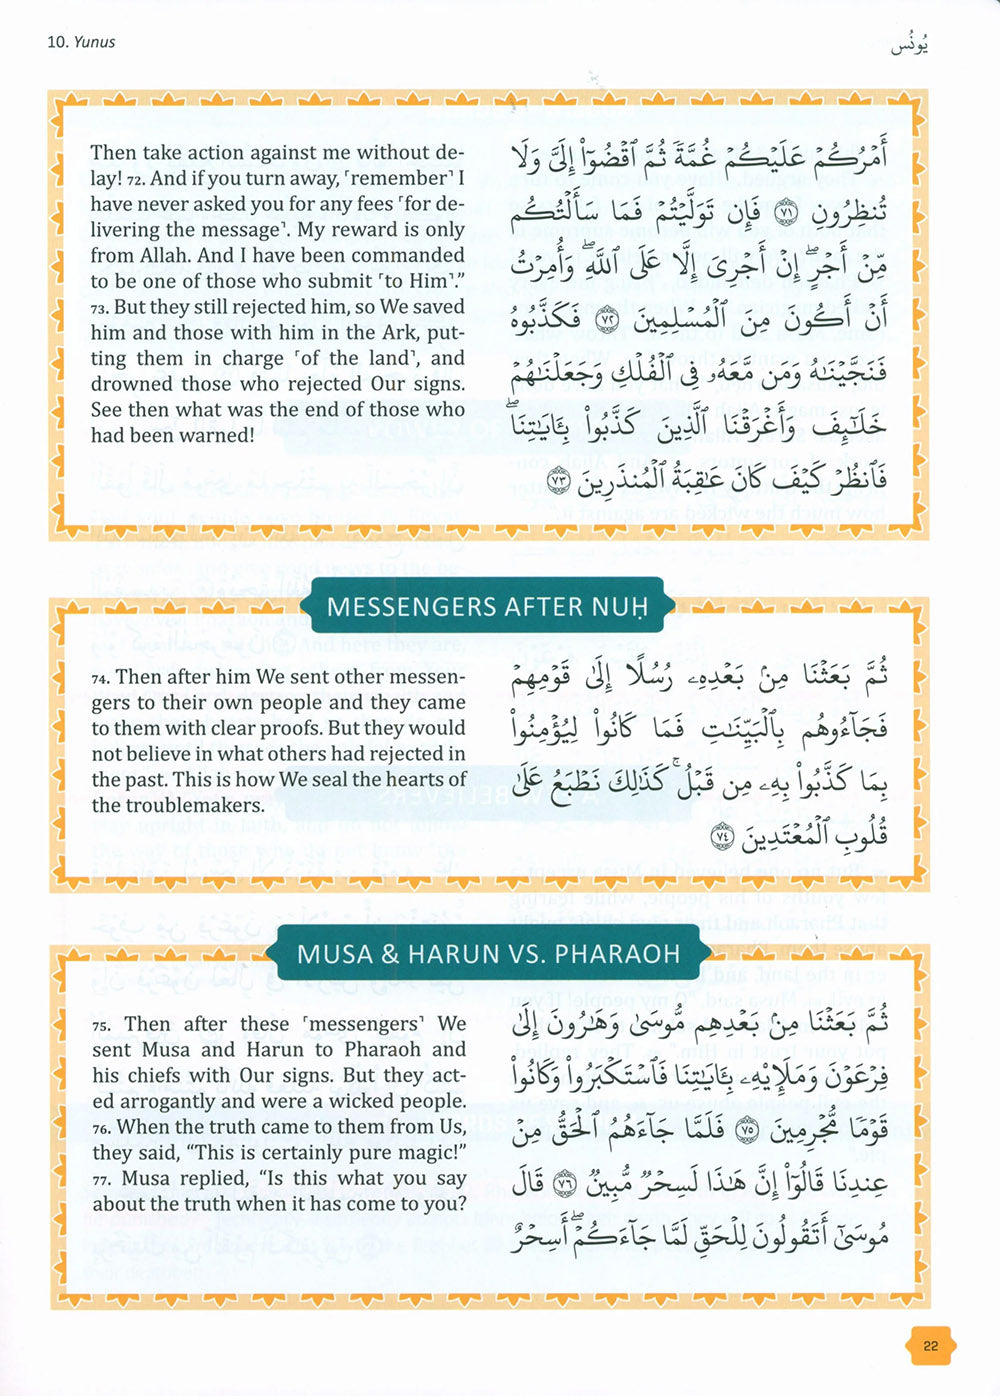 10. Yunus
يُونُس
Then take action against me without de-
lay! 72. And if you turn away, ˹remember˺ I
have never asked you for any fees ˹for de-
livering the message˺. My reward is only
from Allah. And I have been commanded
to be one of those who submit ˹to Him˺.”
73. But they still rejected him, so We saved
him and those with him in the Ark, put-
ting them in charge ˹of the land˺, and
drowned those who rejected Our signs.
See then what was the end of those who
had been warned!
أَمْرُكُمْ عَلَيْكُمْ غُمَّةً ثُمَّ ٱقْضُوٓا۟ إِلَىَّ وَلَا
تُنظِرُونِ ٧١ فَإِن تَوَلَّيْتُمْ فَمَا سَأَلْتُكُم
مِّنْ أَجْرٍ ۖ إِنْ أَجْرِىَ إِلَّا عَلَى ٱللَّهِ ۖ وَأُمِرْتُ
أَنْ أَكُونَ مِنَ ٱلْمُسْلِمِينَ ٧٢ فَكَذَّبُوهُ
فَنَجَّيْنَـٰهُ وَمَن مَّعَهُۥ فِى ٱلْفُلْكِ وَجَعَلْنَـٰهُمْ
خَلَـٰٓئِفَ وَأَغْرَقْنَا ٱلَّذِينَ كَذَّبُوا۟ بِـَٔايَـٰتِنَا ۖ
فَٱنظُرْ كَيْفَ كَانَ عَـٰقِبَةُ ٱلْمُنذَرِينَ ٧٣
MESSENGERS AFTER NUḤ
74. Then after him We sent other messen-
gers to their own people and they came
to them with clear proofs. But they would
not believe in what others had rejected in
the past. This is how We seal the hearts of
the troublemakers.
ثُمَّ بَعَثْنَا مِنۢ بَعْدِهِۦ رُسُلًا إِلَىٰ قَوْمِهِمْ
فَجَآءُوهُم بِٱلْبَيِّنَـٰتِ فَمَا كَانُوا۟ لِيُؤْمِنُوا۟
بِمَا كَذَّبُوا۟ بِهِۦ مِن قَبْلُ ۚ كَذَٰلِكَ نَطْبَعُ عَلَىٰ
قُلُوبِ ٱلْمُعْتَدِينَ ٧٤
MUSA & HARUN VS. PHARAOH
75. Then after these ˹messengers˺ We
sent Musa and Harun to Pharaoh and
his chiefs with Our signs. But they act-
ed arrogantly and were a wicked people.
76. When the truth came to them from Us,
they said, “This is certainly pure magic!”
77. Musa replied, “Is this what you say
about the truth when it has come to you?
ثُمَّ بَعَثْنَا مِنۢ بَعْدِهِم مُّوسَىٰ وَهَـٰرُونَ إِلَىٰ
فِرْعَوْنَ وَمَلَإِي۟هِۦ بِـَٔايَـٰتِنَا فَٱسْتَكْبَرُوا۟ وَكَانُوا۟
قَوْمًا مُّجْرِمِينَ ٧٥ فَلَمَّا جَآءَهُمُ ٱلْحَقُّ مِنْ
عِندِنَا قَالُوٓا۟ إِنَّ هَـٰذَا لَسِحْرٌ مُّبِينٌ ٧٦ قَالَ
مُوسَىٰٓ أَتَقُولُونَ لِلْحَقِّ لَمَّا جَآءَكُمْ ۖ أَسِحْرٌ
22